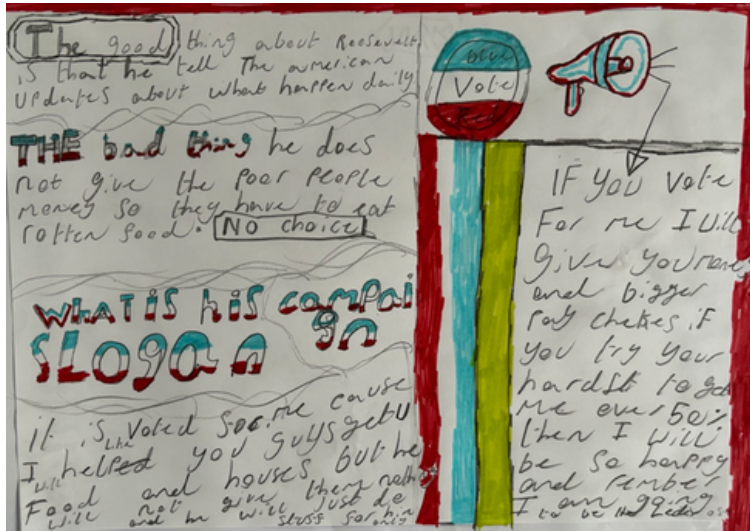 The good thing about Roosevelt
is that he tell The american
updates about what happen daily
THE bad thing he does
not give the poor people
money so they have to eat
rotten food. No choice
WHAT iS hiS campai
gn
SLOGAN
it is like Voted for me cause
I will helped you guys get
Food and houses but he
will not give them nothing
and he will just do
stuff for him
only
blue
Vote
IF you vote
For me I will
give you money
and bigger
pay chekes if
you try your
hardst to get
me over 50%
then I will
be so happy
and rember
I am going
to be the Leader